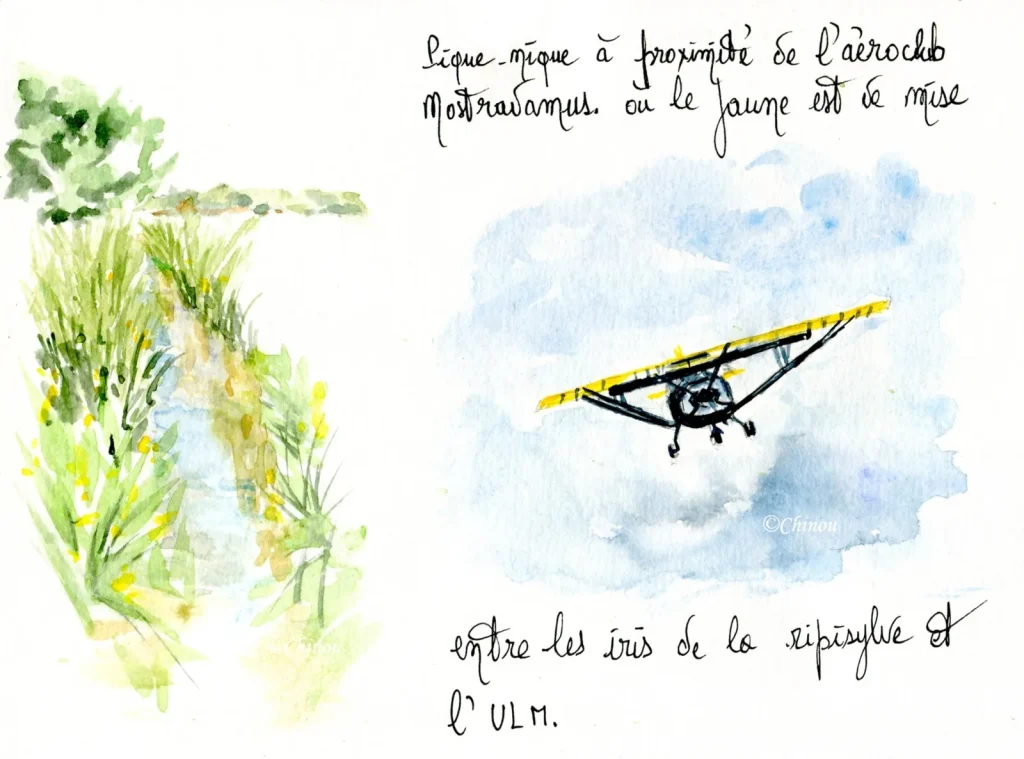 Pique-nique à proximité de l'aéroclub
Nostradamus. où le jaune est de mise
©Chinou
entre les iris de la ripisylve et
l'ULM.